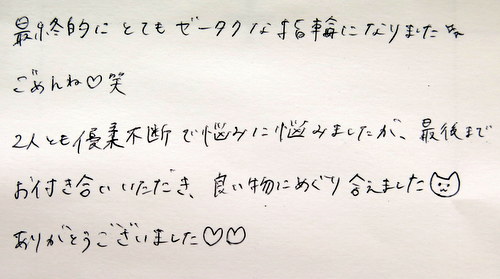 最終的に とても ゼータクな 指輪になりました
ごめんね♡笑
2人とも優柔不断で悩みに悩みましたが、最後まで
お付き合いいただき、良い物にめぐり合えました
ありがとうございました♡♡